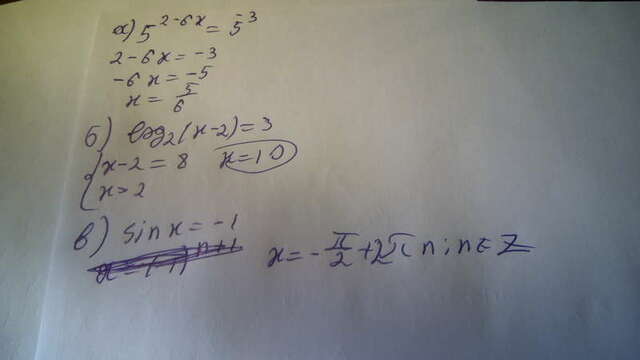 а) 5^(2-6x) = 5^(-3)
2-6x = -3
-6x = -5
x = 5/6
б) log₂(x-2) = 3
{x-2 = 8 x=10
{x > 2
в) sin x = -1
x = -π/2 + 2πn; n ∈ Z